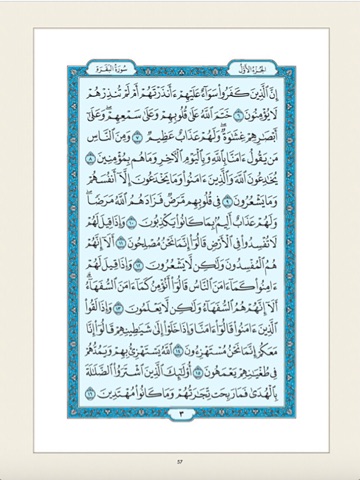 الجزء الأول
سورة البقرة
إِنَّ الَّذِينَ كَفَرُوا سَوَاءٌ عَلَيْهِمْ ءَأَنذَرْتَهُمْ أَمْ لَمْ تُنذِرْهُمْ
لَا يُؤْمِنُونَ ٦ خَتَمَ اللَّهُ عَلَىٰ قُلُوبِهِمْ وَعَلَىٰ سَمْعِهِمْ ۖ وَعَلَىٰ
أَبْصَٰرِهِمْ غِشَٰوَةٌ ۖ وَلَهُمْ عَذَابٌ عَظِيمٌ ٧ وَمِنَ النَّاسِ
مَن يَقُولُ ءَامَنَّا بِاللَّهِ وَبِالْيَوْمِ الْآخِرِ وَمَا هُم بِمُؤْمِنِينَ ٨
يُخَٰدِعُونَ اللَّهَ وَالَّذِينَ ءَامَنُوا وَمَا يَخْدَعُونَ إِلَّا أَنفُسَهُمْ
وَمَا يَشْعُرُونَ ٩ فِي قُلُوبِهِم مَّرَضٌ فَزَادَهُمُ اللَّهُ مَرَضًا ۖ
وَلَهُمْ عَذَابٌ أَلِيمٌ بِمَا كَانُوا يَكْذِبُونَ ١٠ وَإِذَا قِيلَ لَهُمْ
لَا تُفْسِدُوا فِي الْأَرْضِ قَالُوا إِنَّمَا نَحْنُ مُصْلِحُونَ ١١ أَلَا إِنَّهُمْ
هُمُ الْمُفْسِدُونَ وَلَٰكِن لَّا يَشْعُرُونَ ١٢ وَإِذَا قِيلَ لَهُمْ
ءَامِنُوا كَمَا ءَامَنَ النَّاسُ قَالُوا أَنُؤْمِنُ كَمَا ءَامَنَ السُّفَهَاءُ ۗ
أَلَا إِنَّهُمْ هُمُ السُّفَهَاءُ وَلَٰكِن لَّا يَعْلَمُونَ ١٣ وَإِذَا لَقُوا
الَّذِينَ ءَامَنُوا قَالُوا ءَامَنَّا وَإِذَا خَلَوْا إِلَىٰ شَيَٰطِينِهِمْ قَالُوا إِنَّا
مَعَكُمْ إِنَّمَا نَحْنُ مُسْتَهْزِءُونَ ١٤ اللَّهُ يَسْتَهْزِئُ بِهِمْ وَيَمُدُّهُمْ
فِي طُغْيَٰنِهِمْ يَعْمَهُونَ ١٥ أُولَٰئِكَ الَّذِينَ اشْتَرَوُا الضَّلَٰلَةَ
بِالْهُدَىٰ فَمَا رَبِحَت تِّجَٰرَتُهُمْ وَمَا كَانُوا مُهْتَدِينَ ١٦
٣
57